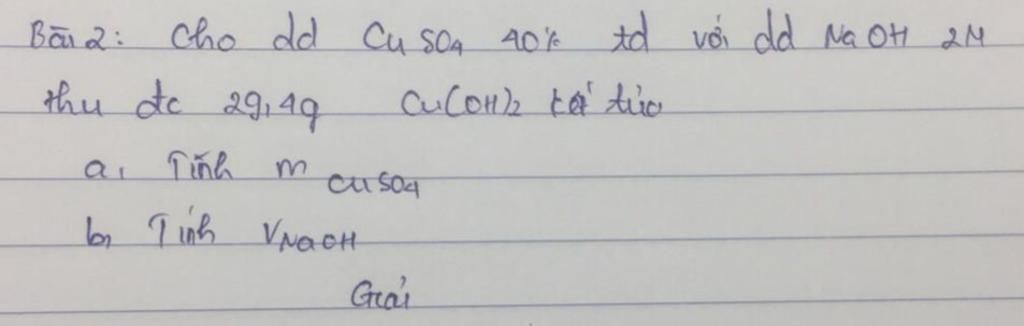 Bài 2: Cho dd CuSO4 40% td với dd NaOH 2M
thu đc 29,4g Cu(OH)2 kết tủa
a, Tính m CuSO4
b, Tính VNaOH
Giải